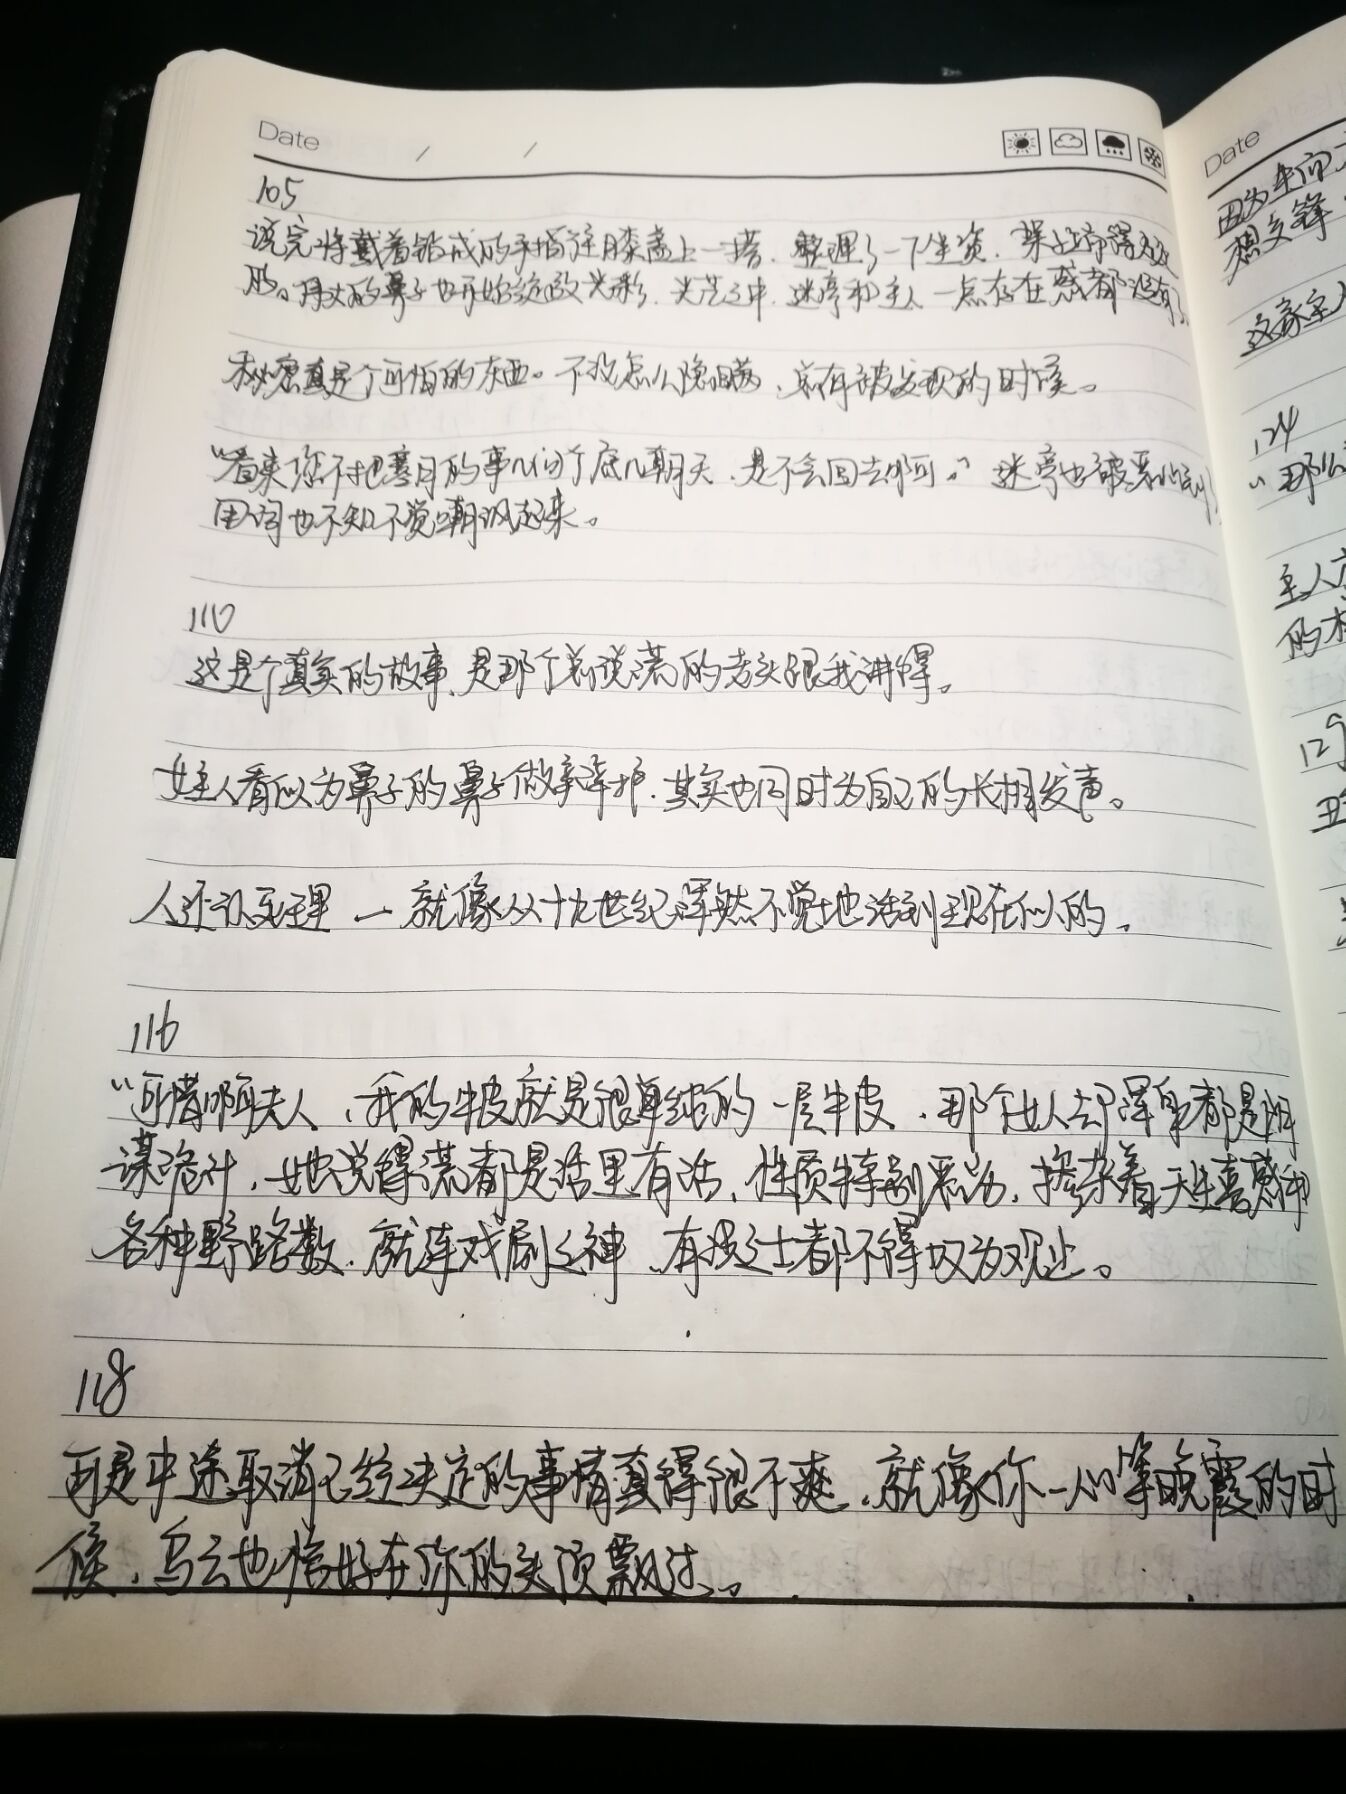 Date / /
105
说完将戴着钻戒的手指往膝盖上一搭，整理了一下坐姿，
的鼻子也开始绽放光彩，光芒之中，迷亭和主人一点存在感都没有了
秘密真是个可怕的东西。不管怎么隐瞒，总有被发现的时候。
“看来您不把寒月的事儿问个底儿朝天，是不会回去啊。”迷亭也被
用词也不知不觉嘲讽起来。
110
这是个真实的故事，是那个说谎的老头跟我讲得。
女主人看似为鼻子的鼻子做辩护，其实也同时为自己的长相发声。
人还认死理 一 就像从十九世纪浑然不觉地活到现在似的。
116
“可惜啊夫人，我的牛皮就是很单纯的一层牛皮，那个女人却浑身都是阴
谋诡计，她说得谎都是话里有话，性质特别恶劣，掺杂着天生喜感和
各种野路数，就连戏剧之神，有识之士都不得叹为观止。
118
可是中途取消已经决定的事情真得很不爽，就像你一人等晚霞的时
候，乌云也恰好在你的头顶飘过。
Date
因为
想交锋
这家主人
124
“那么
主人
的
129